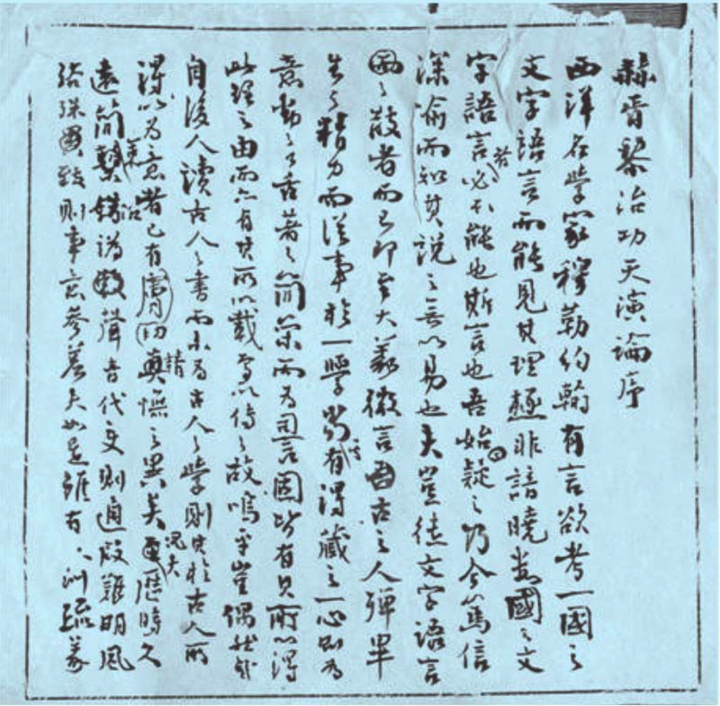 赫胥黎治功天演論序
西洋名學家穆勒約翰有言欲考一國之
文字語言而能見其理極非諳曉數國之文
字語言者必不能也斯言也吾始疑之乃今篤信
深喻而知其說之無以易也夫豈徒文字語言
之散者而已即至大義微言古之人殫畢
生之精力而從事於一學當其有得藏之一心則為
意動之口舌著之簡策而為詞言固皆有其所以得
此理之由而亦有其所以載焉以傳之故嗚乎豈偶然哉
自後人讀古人之書而未為古人之學則其於古人所
得以為意者已有膚切真憮之異矣況夫歷時久
遠簡牘沿訛聲音代變則通假難明風
俗殊致則事意參差夫如是雖有訓疏義